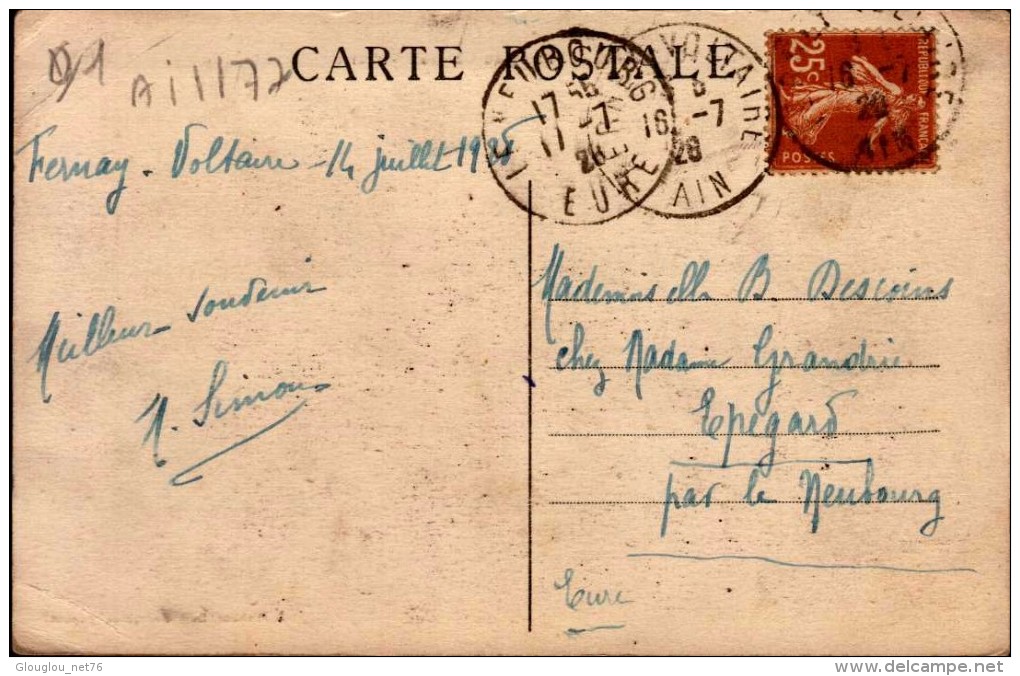 CARTE POSTALE
Ai1172
LE NEUBOURG
EURE
17 -7
VOLTAIRE
16 -7
28
AIN
25c
REPUBLIQUE FRANÇAISE
POSTES
16 -7
AIN
Fernay-Voltaire 14 juillet 1928
Meilleur souvenir
M. Simon
Mademoiselle B Descoins
chez Madame Grandrie
Epegard
par le Neubourg
Eure
Glouglou_net76
delcampe.net